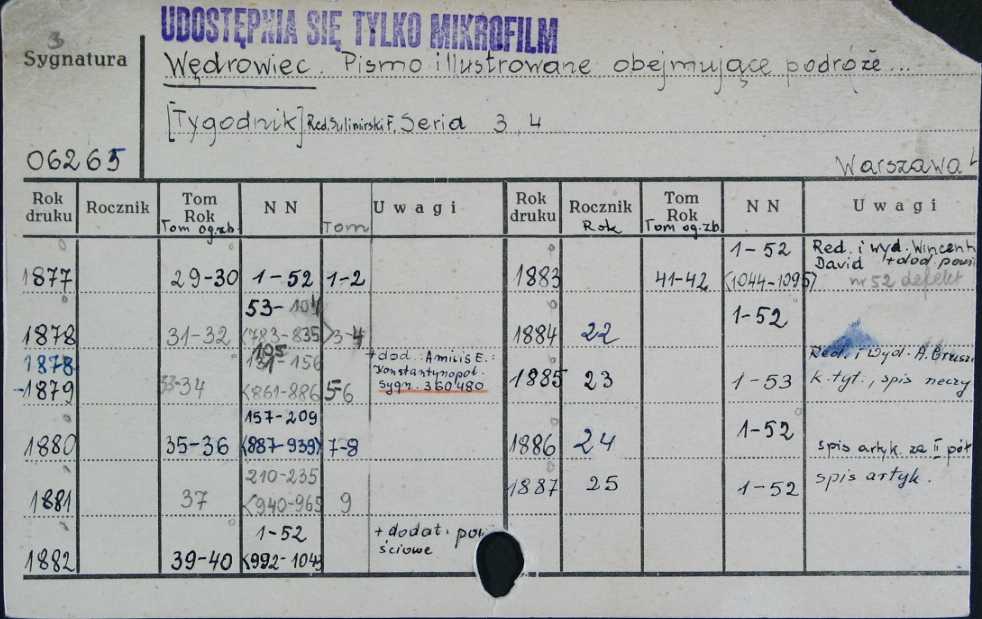 UDOSTĘPNIA SIĘ TYLKO MIKROFILM
3
Sygnatura
Wędrowiec. Pismo illustrowane obejmujące podróże...
[Tygodnik] Red. Sulimirski F. Seria 3, 4
06265
Warszawa
Rok druku Rocznik Tom Rok Tom og.zb. NN Tom Uwagi Rok druku Rocznik Rok Tom Rok Tom og.zb. NN Uwagi
1877 29-30 1-52 1-2
1878 31-32 53-104 (783-835) 3-4
1878-1879 33-34 105 131-156 (861-886 56 + dod.: Amicis E.: Konstantynopol. Sygn. 360480
1880 35-36 157-209 (887-939) 7-8
1881 37 210-235 (940-965 9
1882 39-40 1-52 (992-104 + dodat. pow ściowe
1883 41-42 1-52 (1044-1095) Red. i wyd. Wincent David + dod. powi nr 52 defekt
1884 22 1-52
1885 23 1-53 Red. i wyd. A. Grusz k. tyt., spis
1886 24 1-52 spis artyk. za II pół
1887 25 1-52 spis artyk.